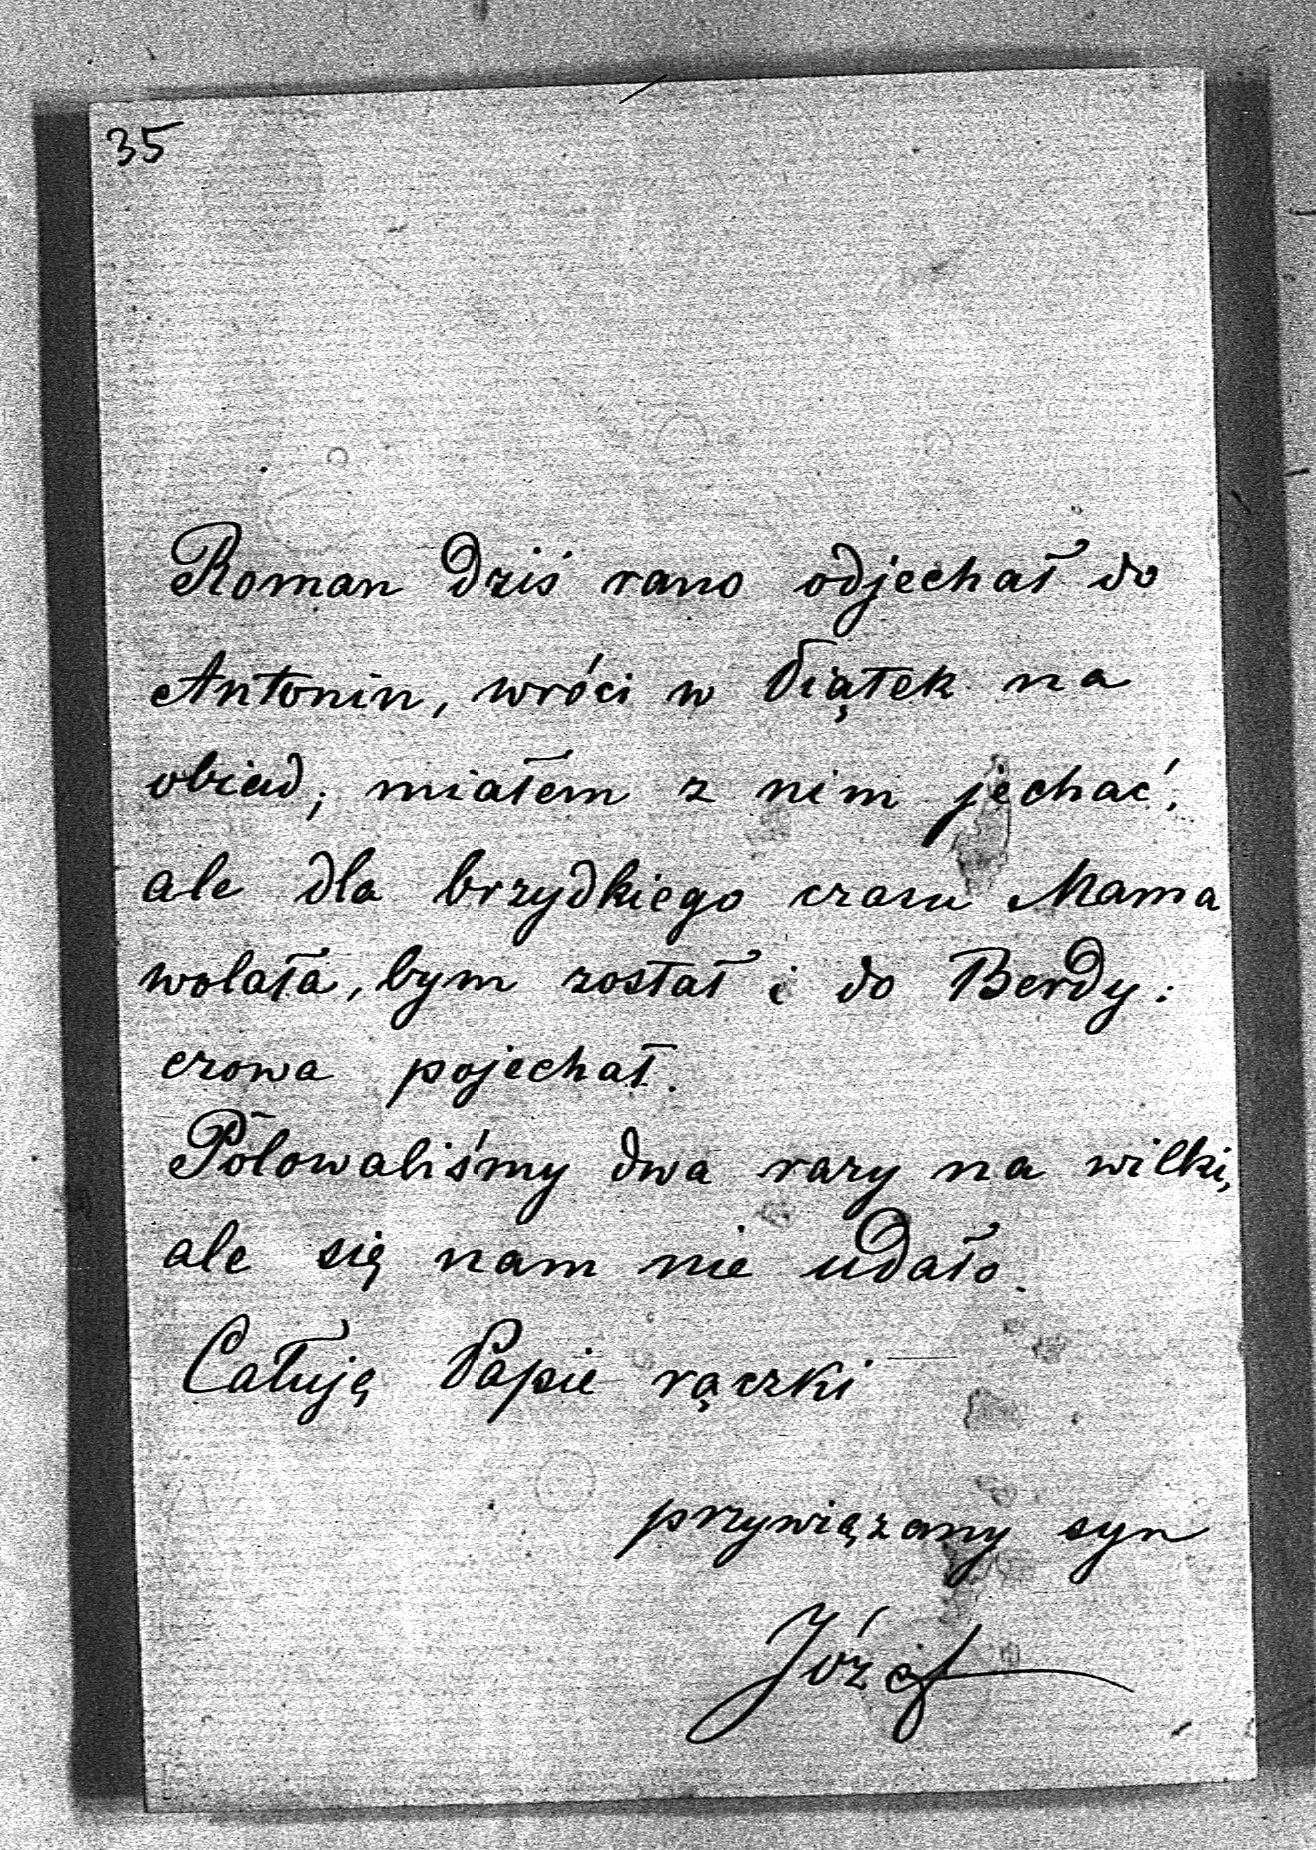 35
Roman dziś rano odjechał do
Antonin, wróci w Piątek na
obiad; miałem z nim jechać.
ale dla brzydkiego czasu Mama
wolała, bym został i do Berdy:
czowa pojechał.
Polowaliśmy dwa razy na wilki,
ale się nam nie udało.
Całuję Papie rączki
przywiązany syn
Józef